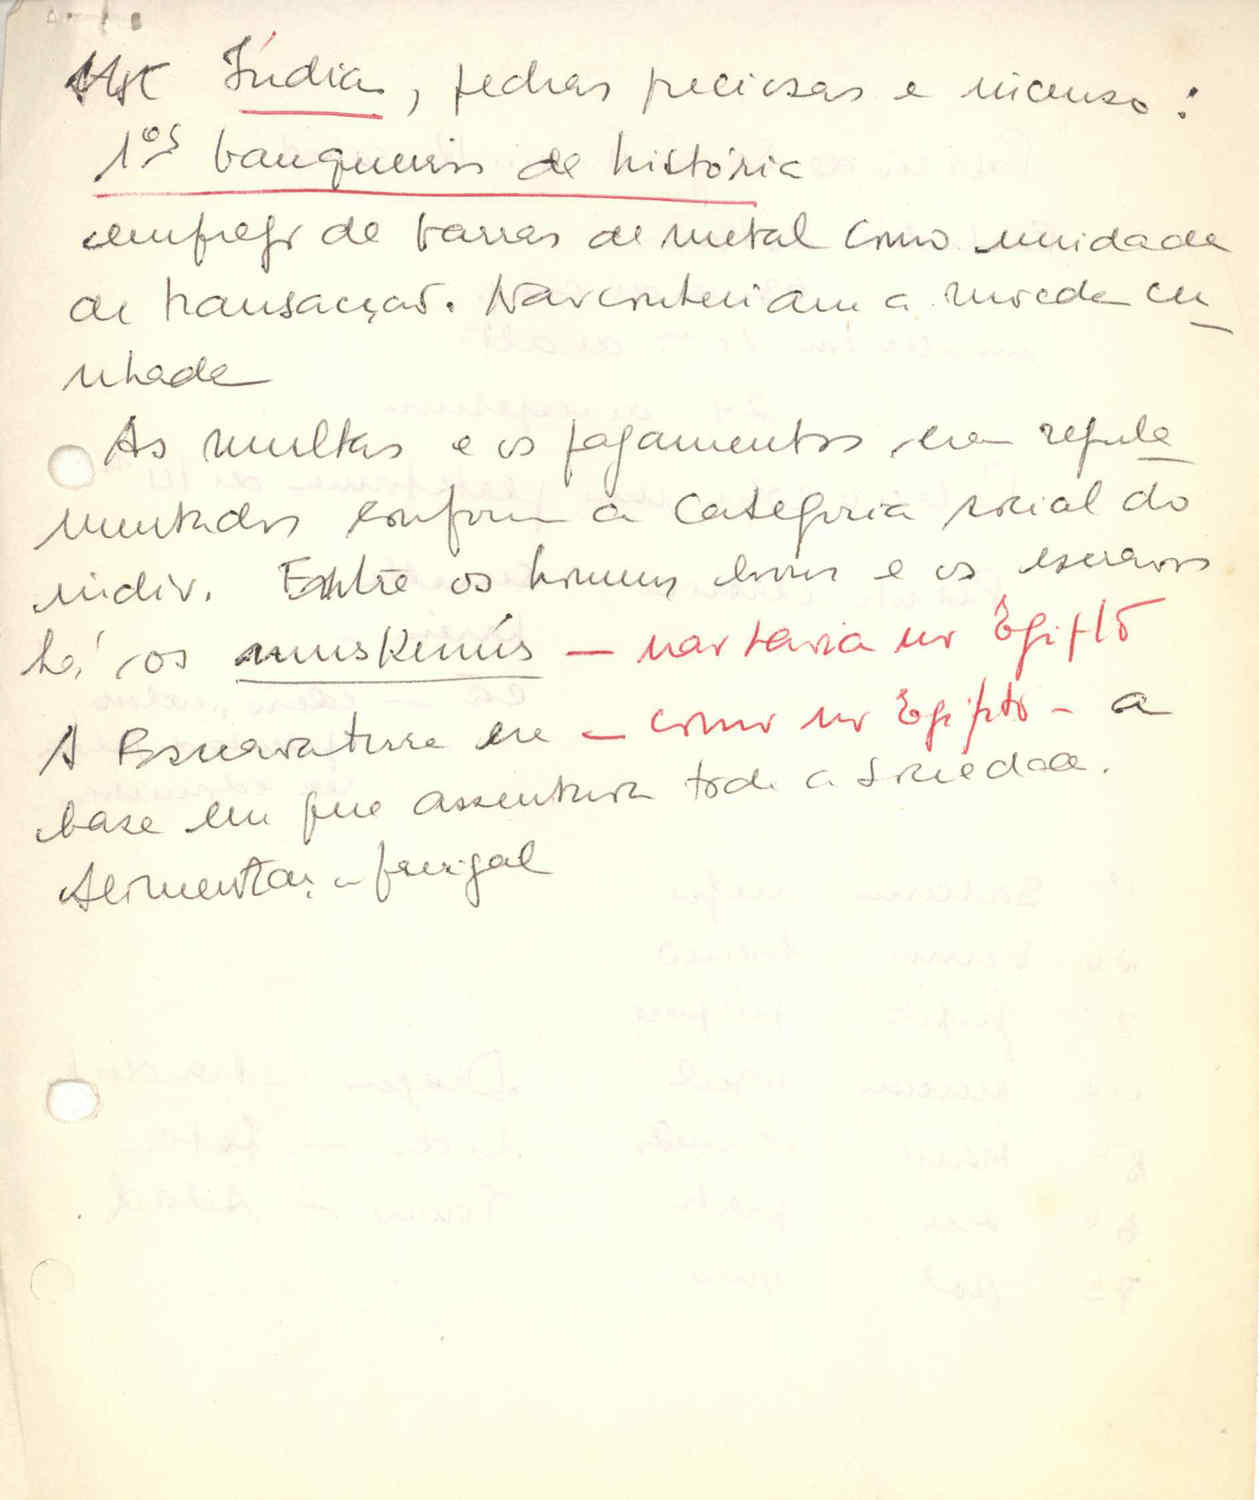 Índia, pedras preciosas e incenso:
1os banqueiros de história
emprego de barras de metal como unidade
de transacção. Não conheciam a moeda cu_
nhada
As multas e os pagamentos era regula_
mentados conforme a categoria social do
indiv. Entre os homens livres e os escravos
há os muskenús — não havia no Egipto
A Escravatura era — como no Egipto — a
base em que assentava toda a Sociedade.
Alimentaç. frugal